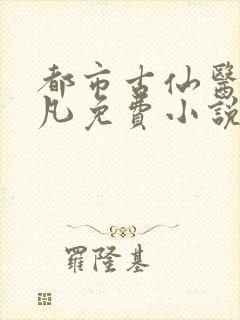 都市古仙醫
凡免費小説
羅隆基